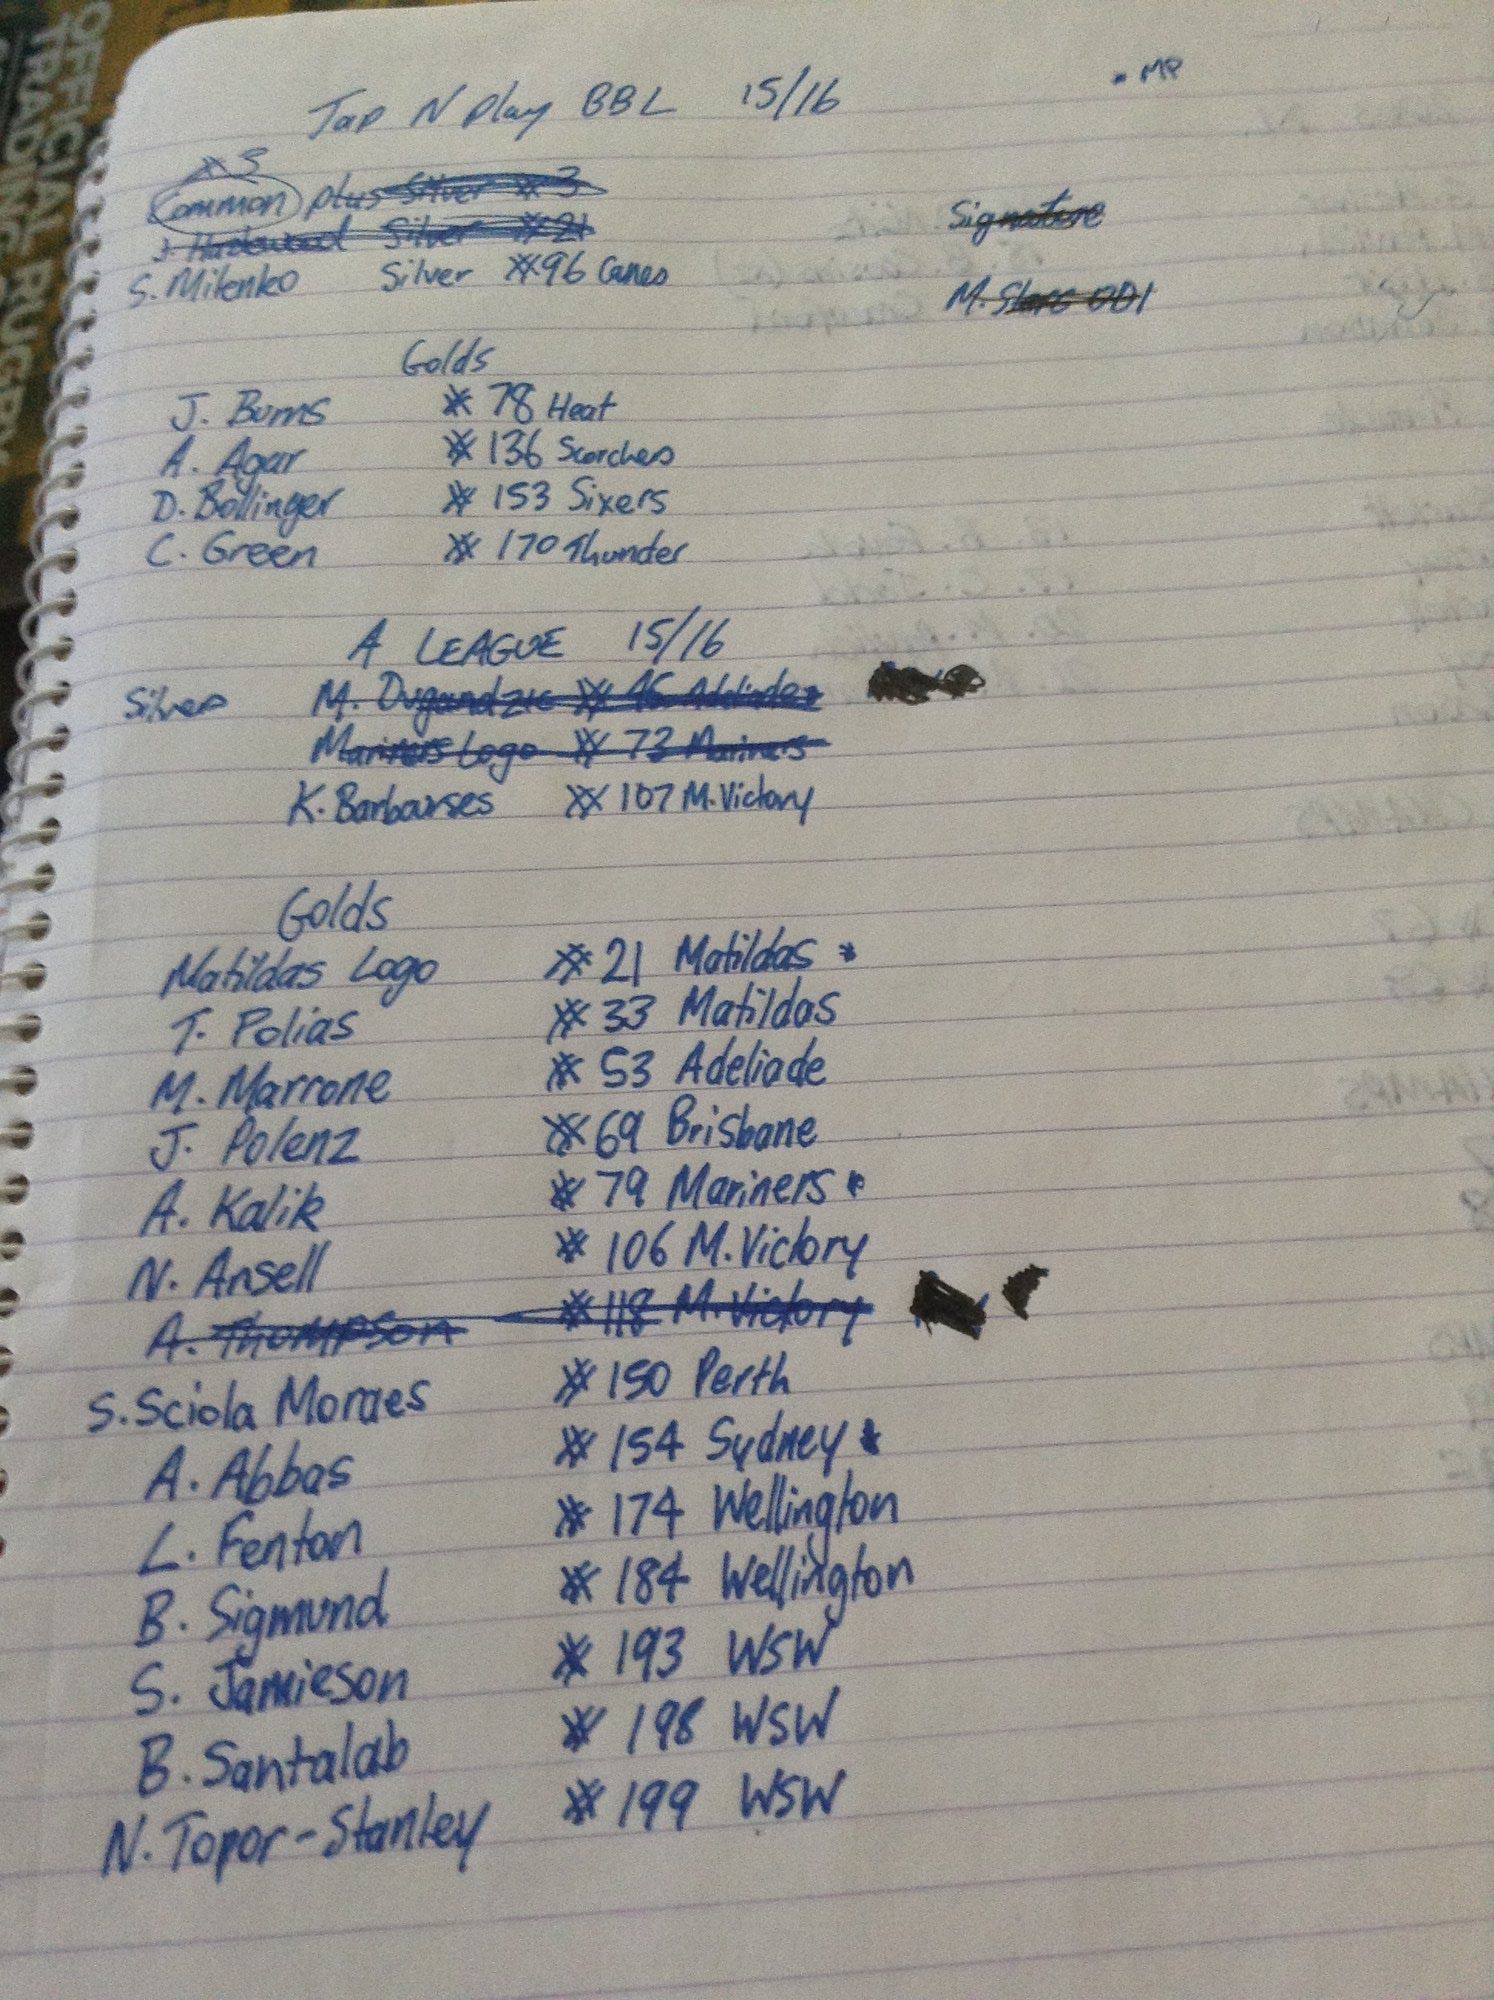 OFFICIAL RUGBY
TRADING
• MP
Tap N Play BBL 15/16
x 3
Common plus Silver # 3
J. Hazlewood Silver # 21
Signature
S. Milenko Silver # 96 Canes
M. Starc ODI
Golds
J. Burns # 78 Heat
A. Agar # 136 Scorchers
D. Bollinger # 153 Sixers
C. Green # 170 Thunder
A LEAGUE 15/16
Silver M. Dugandzic # 46 Adeliade
Mariners Logo # 73 Mariners
K. Barbarses # 107 M. Victory
Golds
Matildas Logo # 21 Matildas *
T. Polias # 33 Matildas
M. Marrone # 53 Adeliade
J. Polenz # 69 Brisbane
A. Kalik # 79 Mariners *
N. Ansell # 106 M. Victory
A. Thompson # 118 M. Victory
S. Sciola Moraes # 150 Perth
A. Abbas # 154 Sydney *
L. Fenton # 174 Wellington
B. Sigmund # 184 Wellington
S. Jamieson # 193 WSW
B. Santalab # 198 WSW
N. Topor-Stanley # 199 WSW